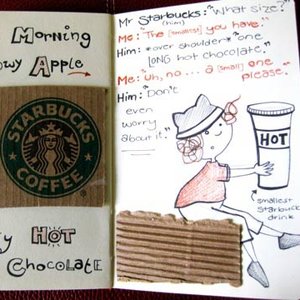 Morning
wy Apple
STARBUCKS
COFFEE
HOT
Chocolate
Mr Starbucks: "What size?"
(him)
Me: The [smallest] you have.
Him: *over shoulder* "one
LONG hot chocolate."
Me: Uh, no... a [small] one
please."
Him: Don't
even
worry
about it."
HOT
smallest
Starbucks
drink